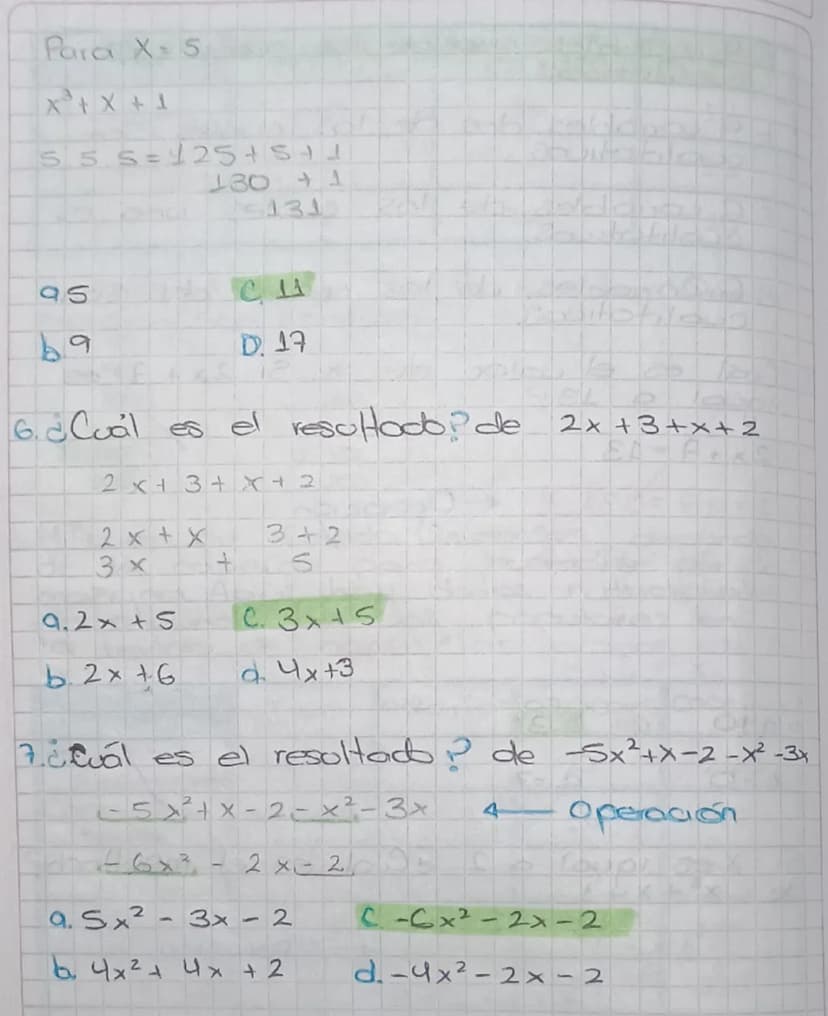 Para X = 5
x³ + x + 1
5 5 5 = 125 + 5 + 1
130 + 1
131
a 5 C. 11
b 9 D. 17
6. ¿Cuál es el resultado? de 2x + 3 + x + 2
2x + 3 + x + 2
2x + x 3 + 2
3x + 5
a. 2x + 5 C. 3x + 5
b. 2x + 6 d. 4x + 3
7. ¿Cuál es el resultado? de -5x² + x - 2 - x² - 3x
-5x² + x - 2 - x² - 3x ← Operación
-6x² - 2x - 2
a. 5x² - 3x - 2 C. -6x² - 2x - 2
b. 4x² + 4x + 2 d. -4x² - 2x - 2